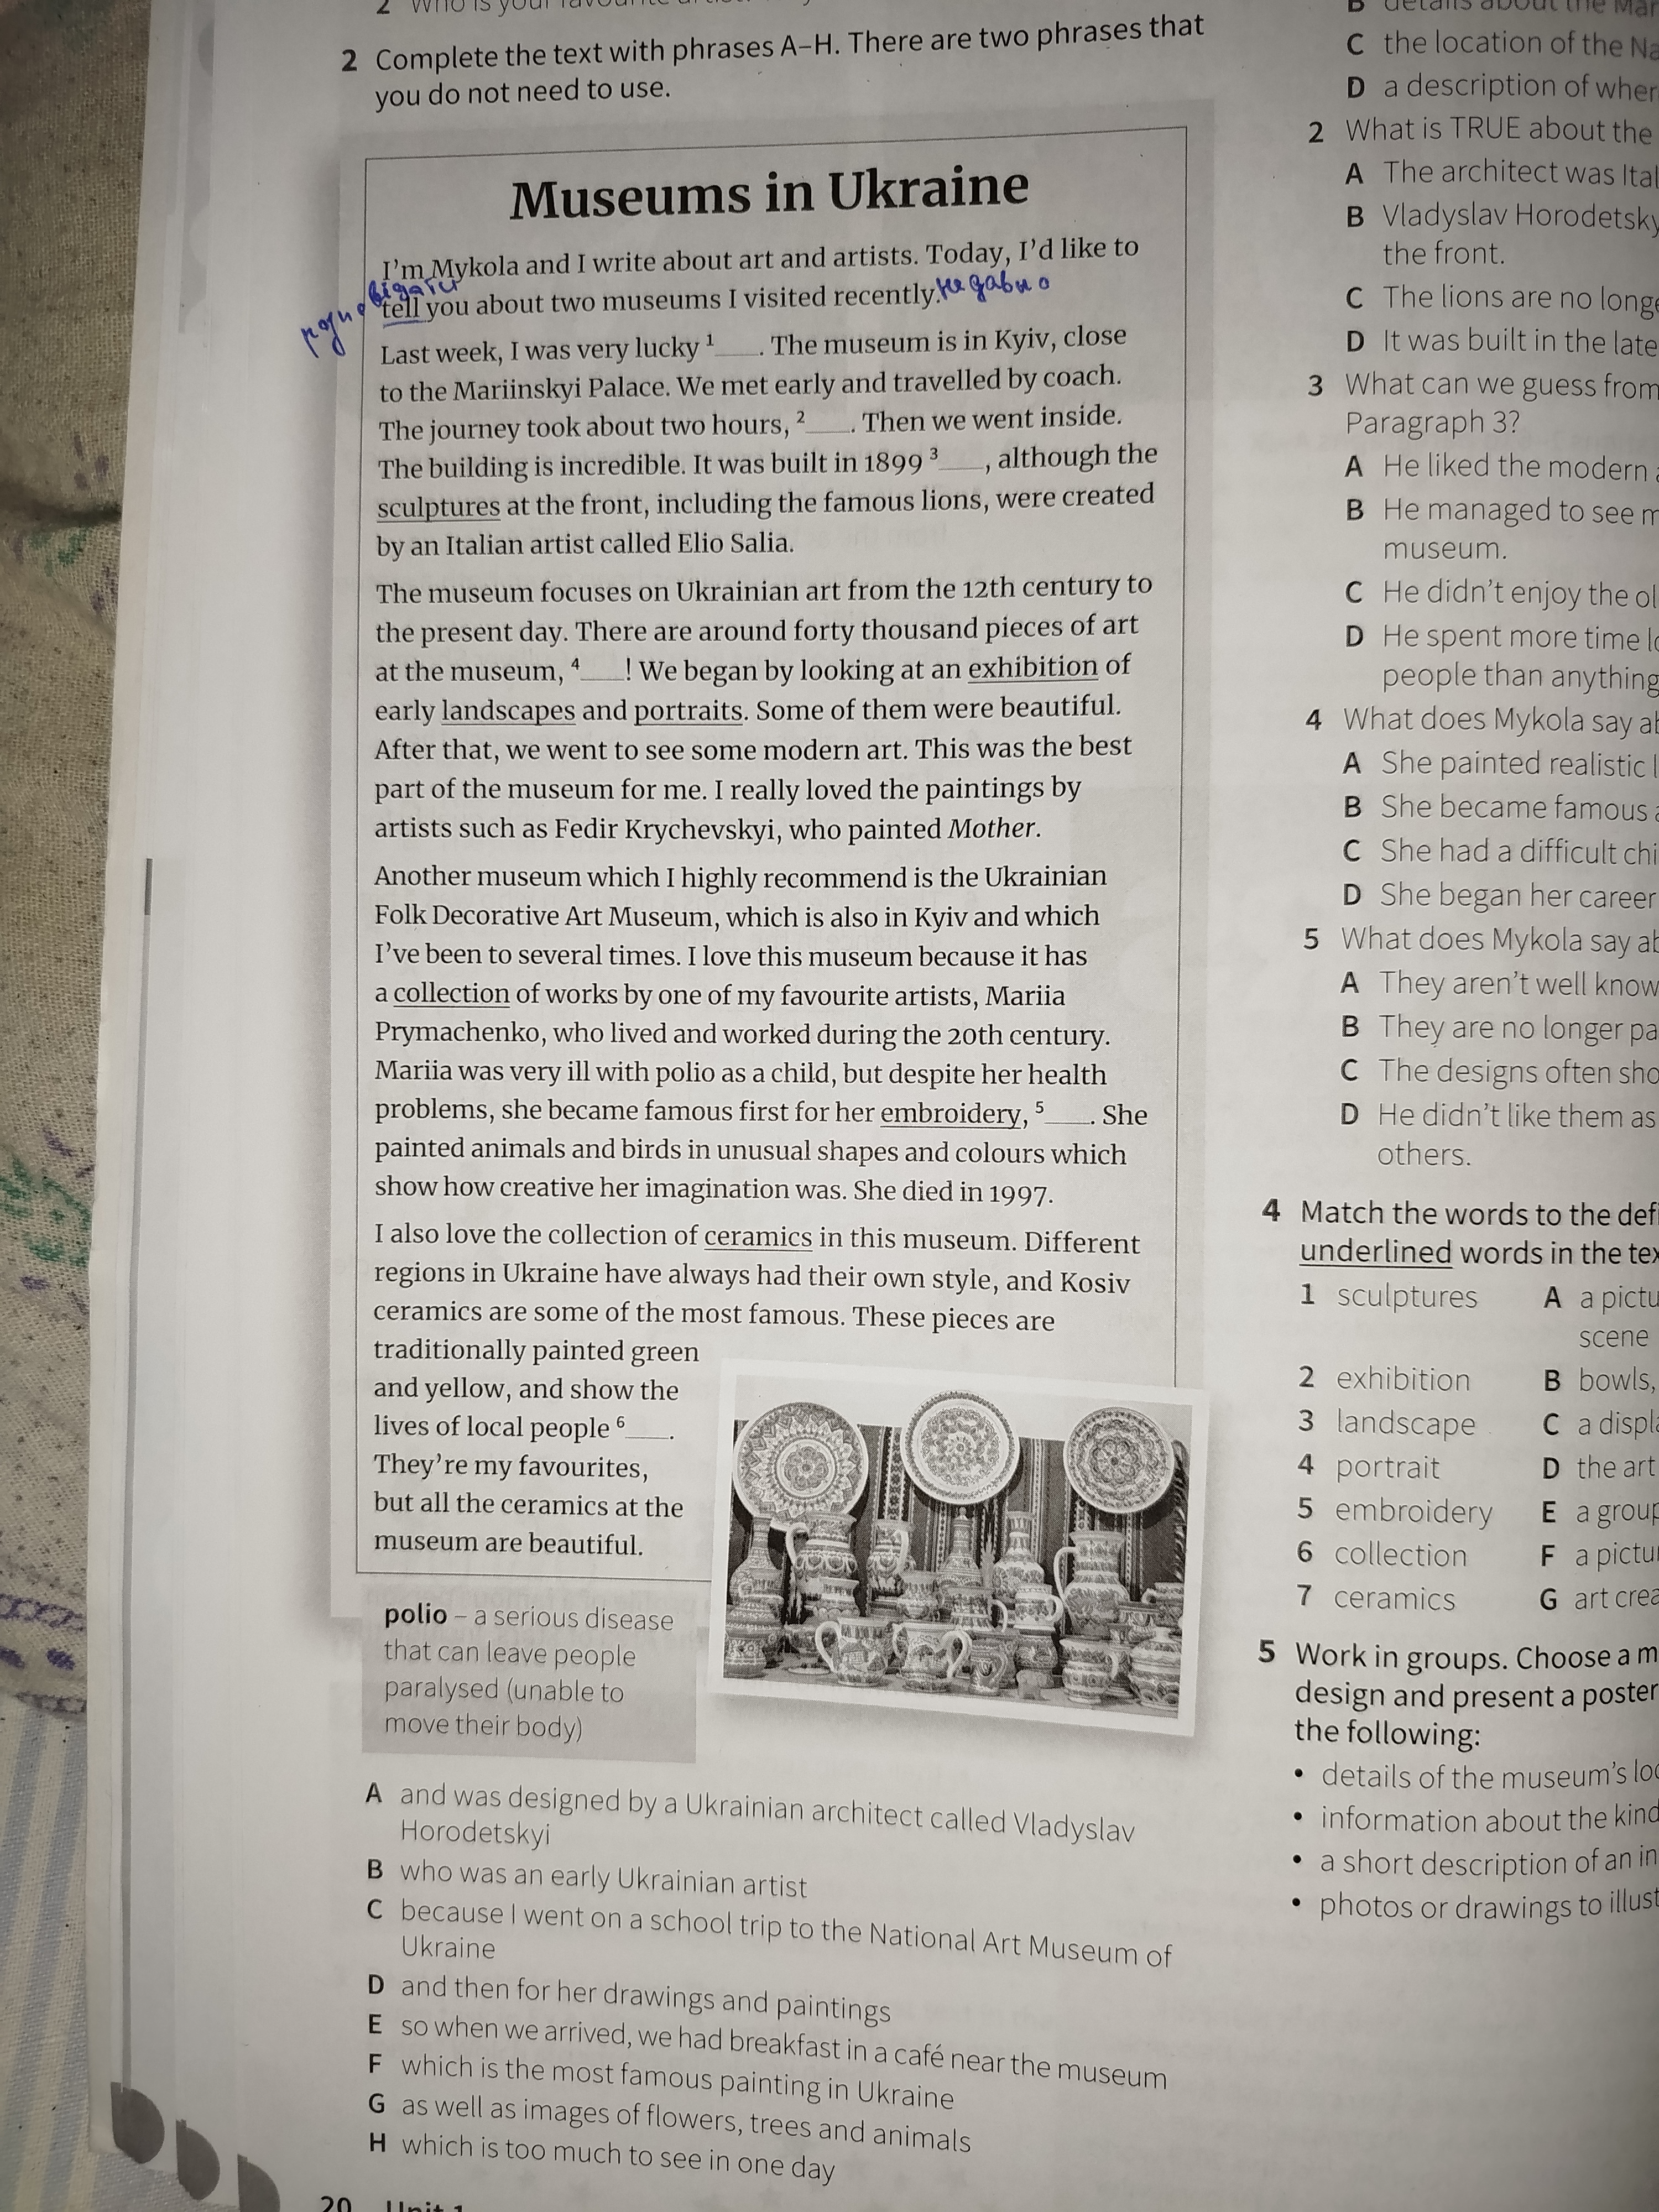 2 Complete the text with phrases A–H. There are two phrases that
you do not need to use.
Museums in Ukraine
I'm Mykola and I write about art and artists. Today, I'd like to
tell you about two museums I visited recently. недавно
Last week, I was very lucky ¹___. The museum is in Kyiv, close
to the Mariinskyi Palace. We met early and travelled by coach.
The journey took about two hours, ²___. Then we went inside.
The building is incredible. It was built in 1899 ³___, although the
sculptures at the front, including the famous lions, were created
by an Italian artist called Elio Salia.
The museum focuses on Ukrainian art from the 12th century to
the present day. There are around forty thousand pieces of art
at the museum, ⁴___! We began by looking at an exhibition of
early landscapes and portraits. Some of them were beautiful.
After that, we went to see some modern art. This was the best
part of the museum for me. I really loved the paintings by
artists such as Fedir Krychevskyi, who painted Mother.
Another museum which I highly recommend is the Ukrainian
Folk Decorative Art Museum, which is also in Kyiv and which
I've been to several times. I love this museum because it has
a collection of works by one of my favourite artists, Mariia
Prymachenko, who lived and worked during the 20th century.
Mariia was very ill with polio as a child, but despite her health
problems, she became famous first for her embroidery, ⁵___. She
painted animals and birds in unusual shapes and colours which
show how creative her imagination was. She died in 1997.
I also love the collection of ceramics in this museum. Different
regions in Ukraine have always had their own style, and Kosiv
ceramics are some of the most famous. These pieces are
traditionally painted green
and yellow, and show the
lives of local people ⁶___.
They're my favourites,
but all the ceramics at the
museum are beautiful.
polio – a serious disease
that can leave people
paralysed (unable to
move their body)
A and was designed by a Ukrainian architect called Vladyslav
Horodetskyi
B who was an early Ukrainian artist
C because I went on a school trip to the National Art Museum of
Ukraine
D and then for her drawings and paintings
E so when we arrived, we had breakfast in a café near the museum
F which is the most famous painting in Ukraine
G as well as images of flowers, trees and animals
H which is too much to see in one day
20 Unit 1
C the location of the
D a description of
2 What is TRUE about the
A The architect was
B Vladyslav
the front.
C The lions are no
D It was built in the late
3 What can we guess from
Paragraph 3?
A He liked the modern
B He managed to see
museum.
C He didn't enjoy the
D He spent more time
people than anything
4 What does Mykola say
A She painted realistic
B She became famous
C She had a difficult
D She began her career
5 What does Mykola say
A They aren't well
B They are no longer
C The designs often
D He didn't like them as
others.
4 Match the words to the
underlined words in the
1 sculptures A a
scene
2 exhibition B bowls,
3 landscape C a
4 portrait D the art
5 embroidery E a
6 collection F a
7 ceramics G art
5 Work in groups. Choose a
design and present a poster
the following:
• details of the museum's
• information about the
• a short description of an
• photos or drawings to